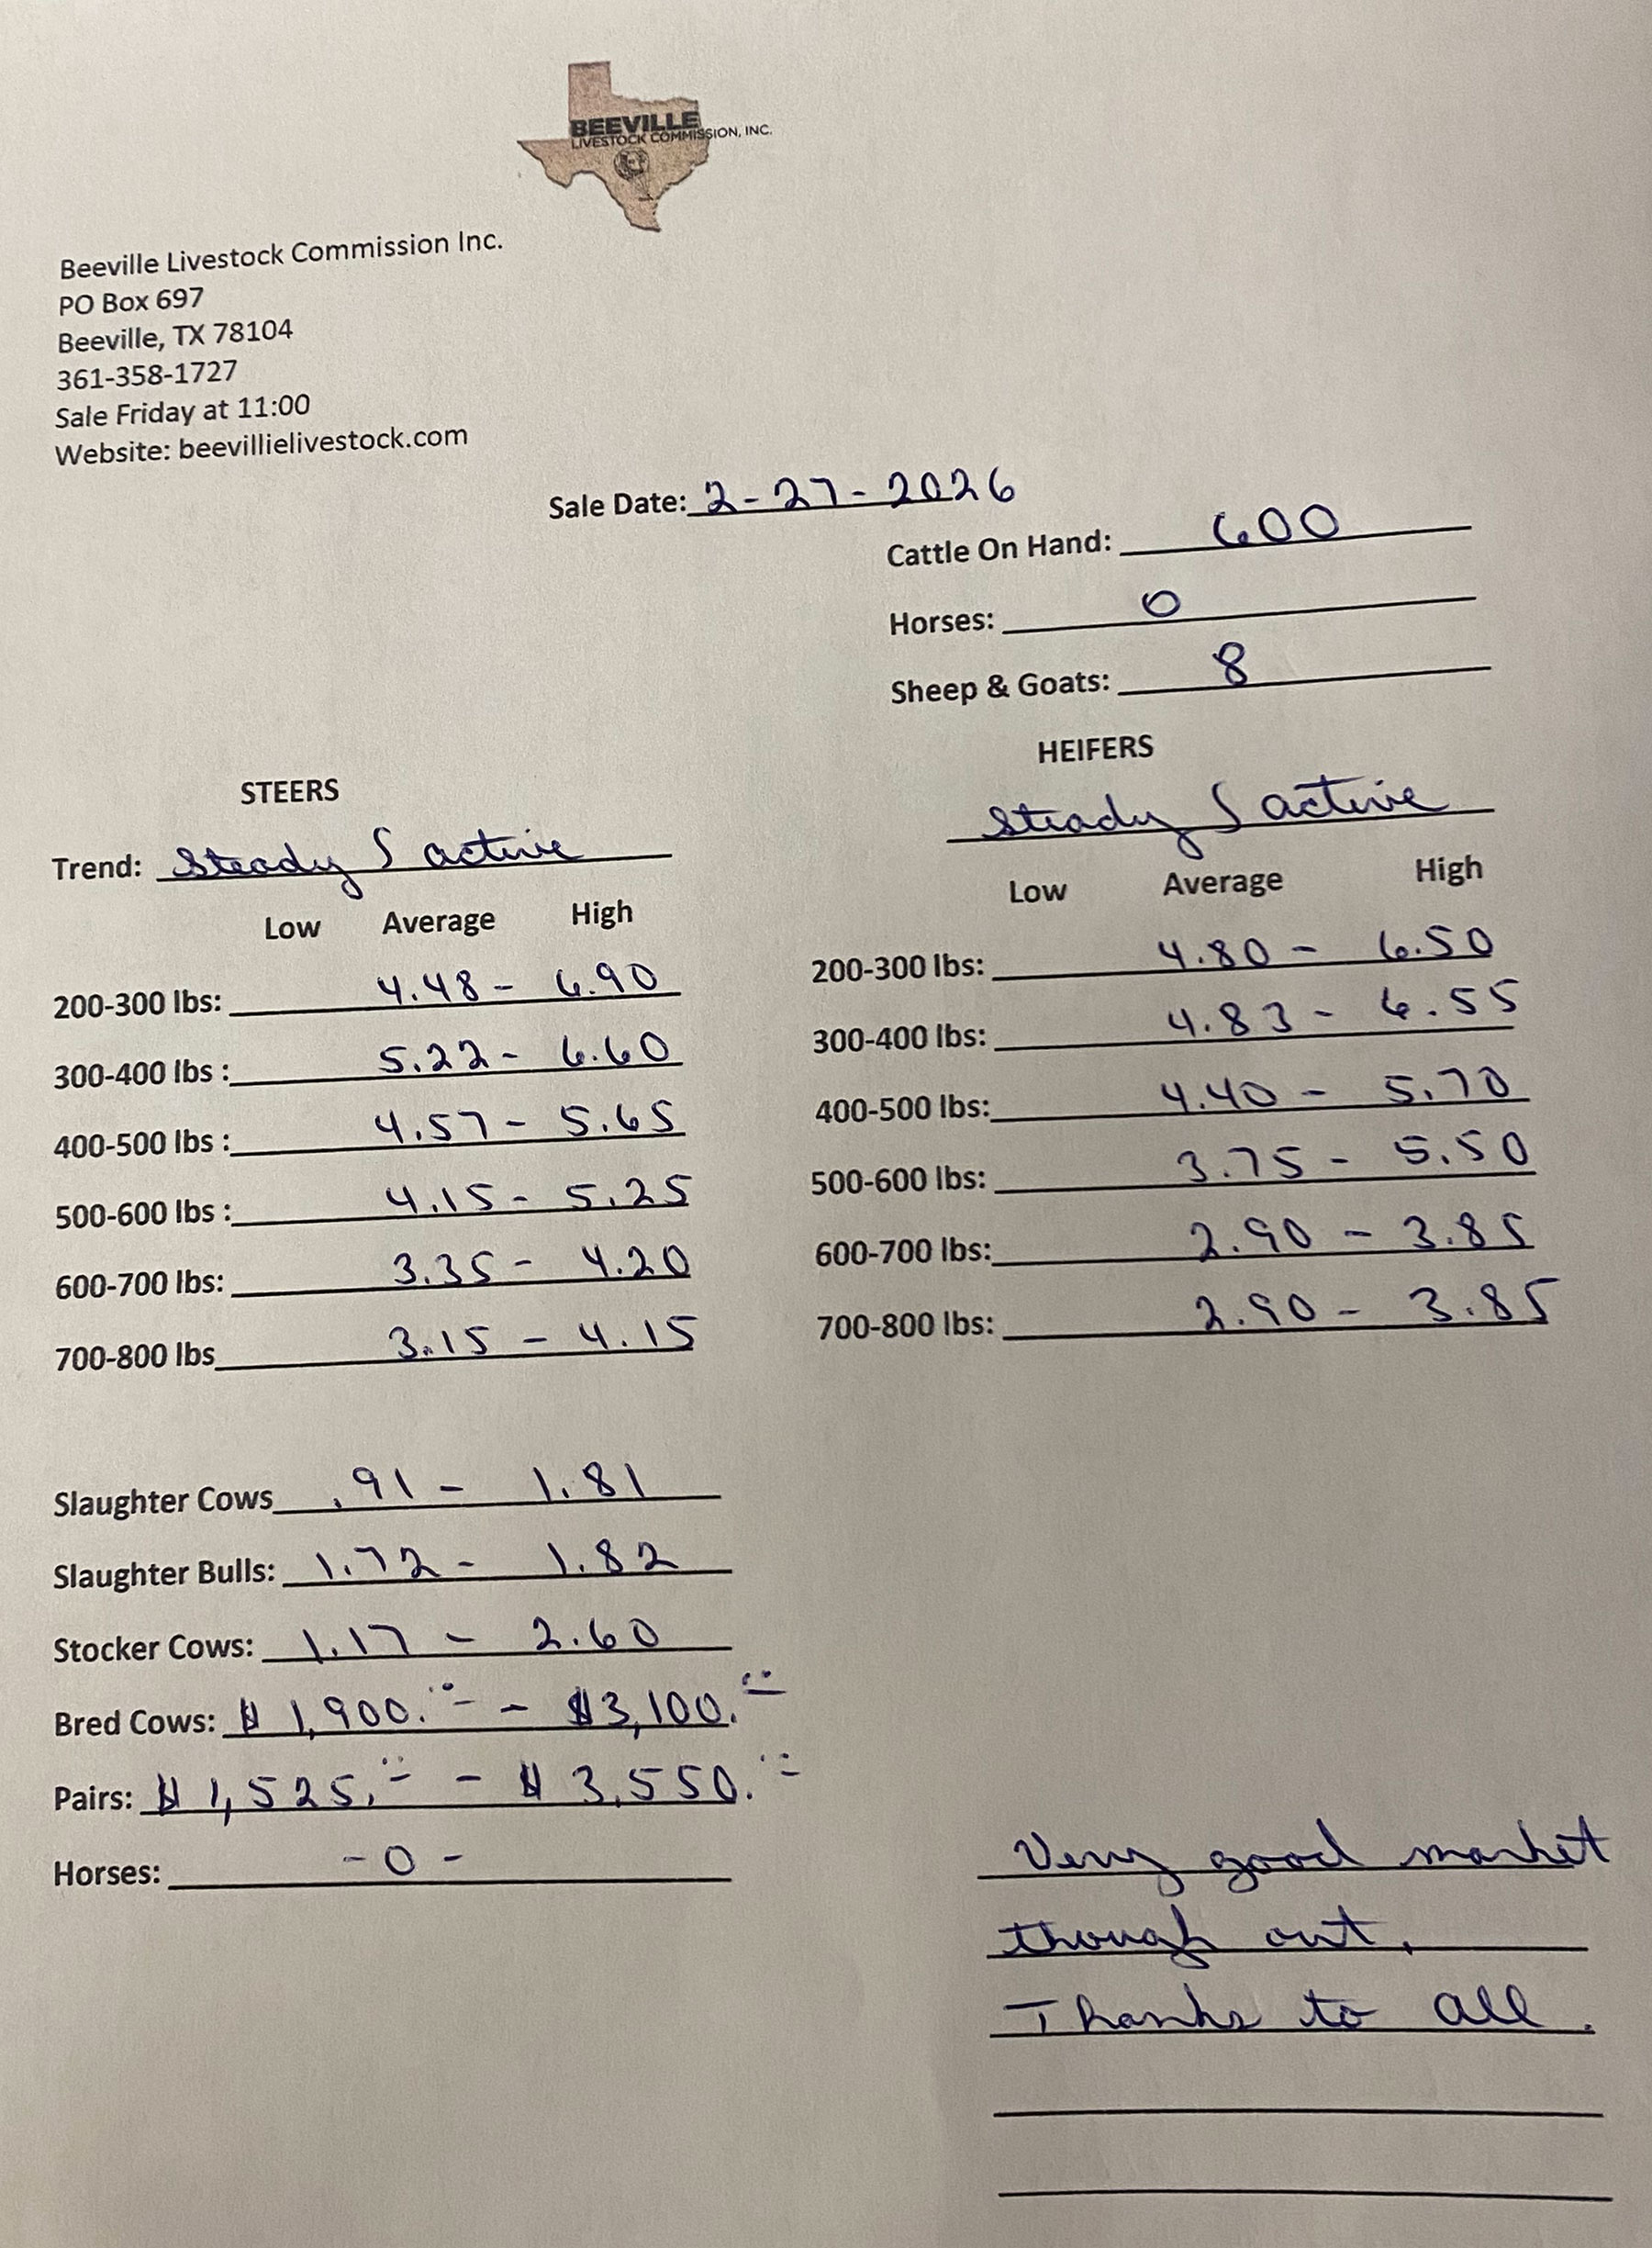 BEEVILLE
LIVESTOCK COMMISSION, INC.
Beeville Livestock Commission Inc.
PO Box 697
Beeville, TX 78104
361-358-1727
Sale Friday at 11:00
Website: beevillielivestock.com
Sale Date: 2-27-2026
Cattle On Hand: 600
Horses: 0
Sheep & Goats: 8
STEERS
Trend: Steady & active
Low Average High
200-300 lbs: 4.48 - 6.90
300-400 lbs : 5.22 - 6.60
400-500 lbs : 4.57 - 5.65
500-600 lbs : 4.15 - 5.25
600-700 lbs: 3.35 - 4.20
700-800 lbs 3.15 - 4.15
HEIFERS
Steady & active
Low Average High
200-300 lbs: 4.80 - 6.50
300-400 lbs: 4.83 - 6.55
400-500 lbs: 4.40 - 5.70
500-600 lbs: 3.75 - 5.50
600-700 lbs: 2.90 - 3.85
700-800 lbs: 2.90 - 3.85
Slaughter Cows .91 - 1.81
Slaughter Bulls: 1.72 - 1.82
Stocker Cows: 1.17 - 2.60
Bred Cows: $1,900.00 - $3,100.00
Pairs: $1,525.00 - $3,550.00
Horses: -0-
Very good market
though out.
Thanks to all.